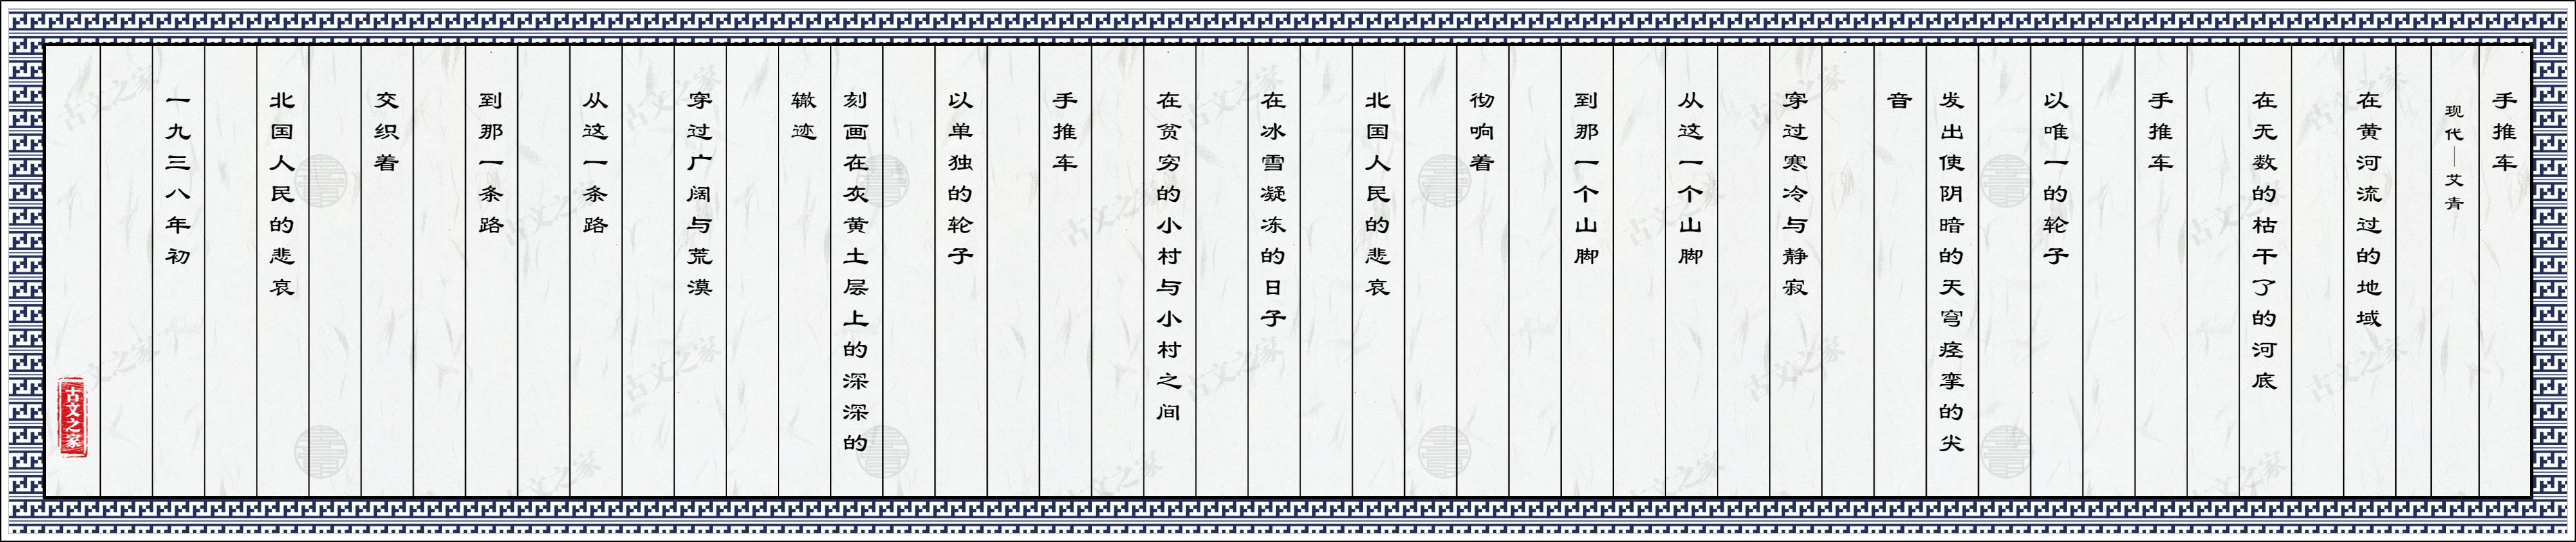 手推车
现代—艾青
在黄河流过的地域
在无数的枯干了的河底
手推车
以唯一的轮子
发出使阴暗的天穹痉挛的尖
音
穿过寒冷与静寂
从这一个山脚
到那一个山脚
彻响着
北国人民的悲哀
在冰雪凝冻的日子
在贫穷的小村与小村之间
手推车
以单独的轮子
刻画在灰黄土层上的深深的
辙迹
穿过广阔与荒漠
从这一条路
到那一条路
交织着
北国人民的悲哀
一九三八年初
古文之家